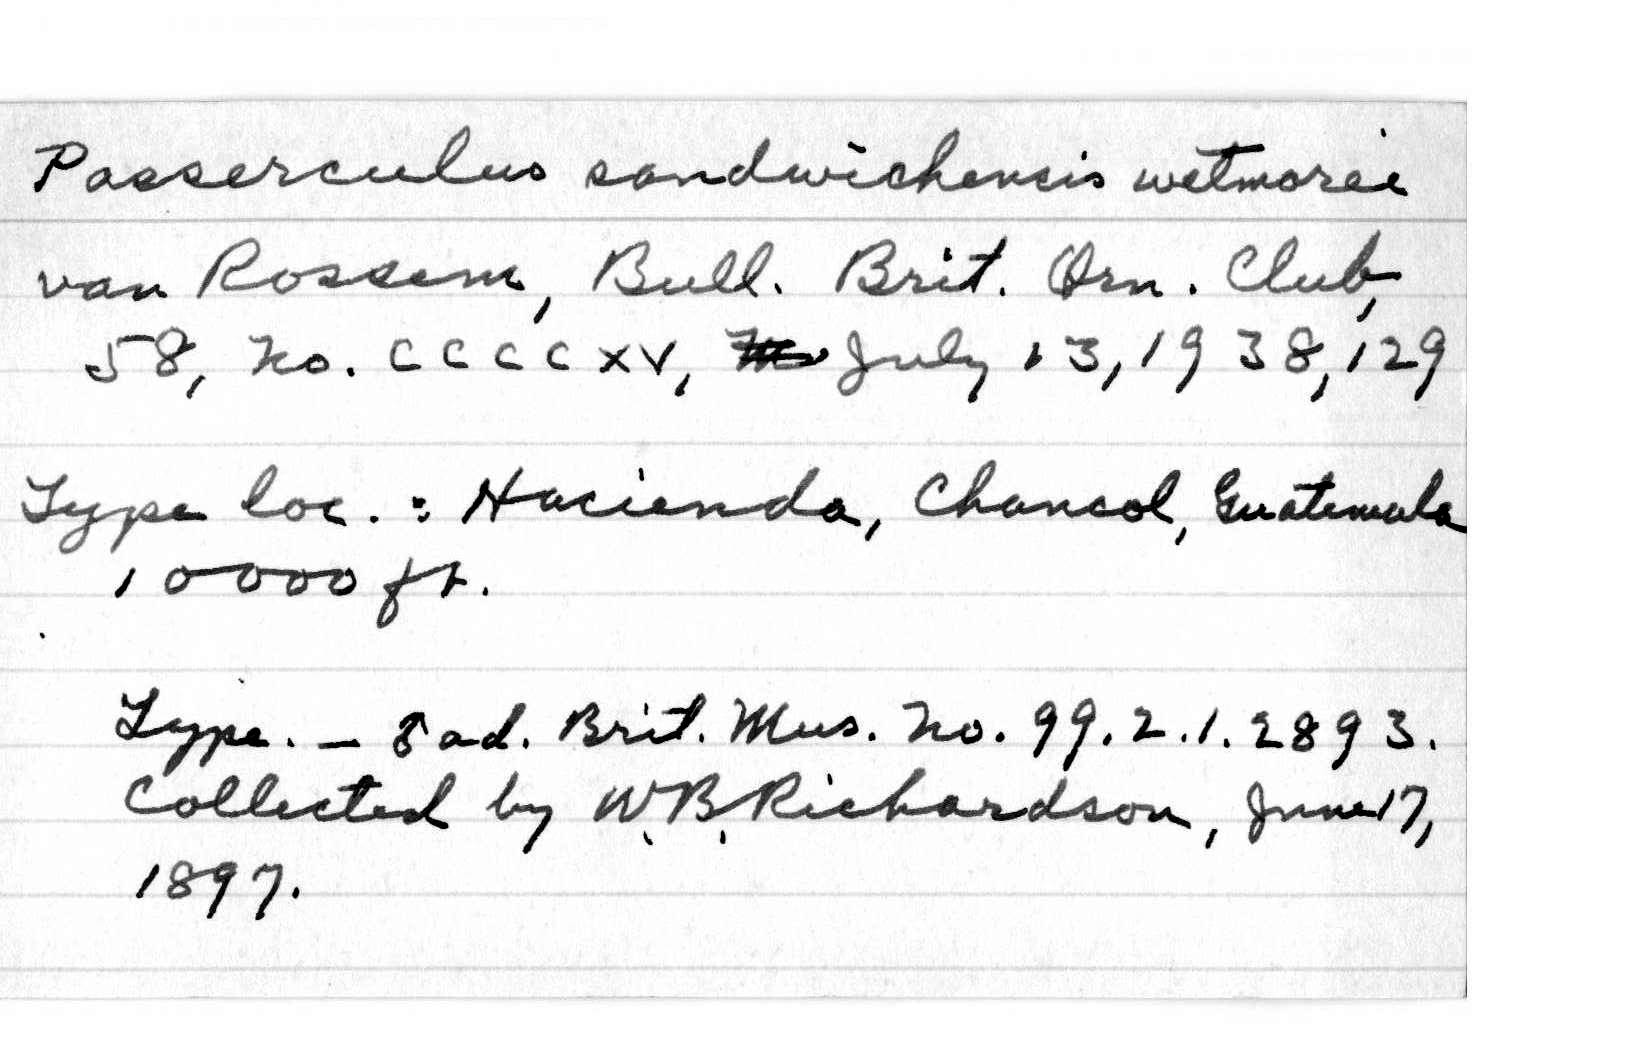 Passerculus sandwichensis wetmorei
van Rossem, Bull. Brit. Orn. Club,
58, No. CCCCXV, July 13, 1938, 129
Type loc. : Hacienda, Chancol, Guatemala
10000 ft.
Type. — ♂ ad. Brit. Mus. No. 99.2.1.2893.
Collected by W. B. Richardson, June 17,
1897.